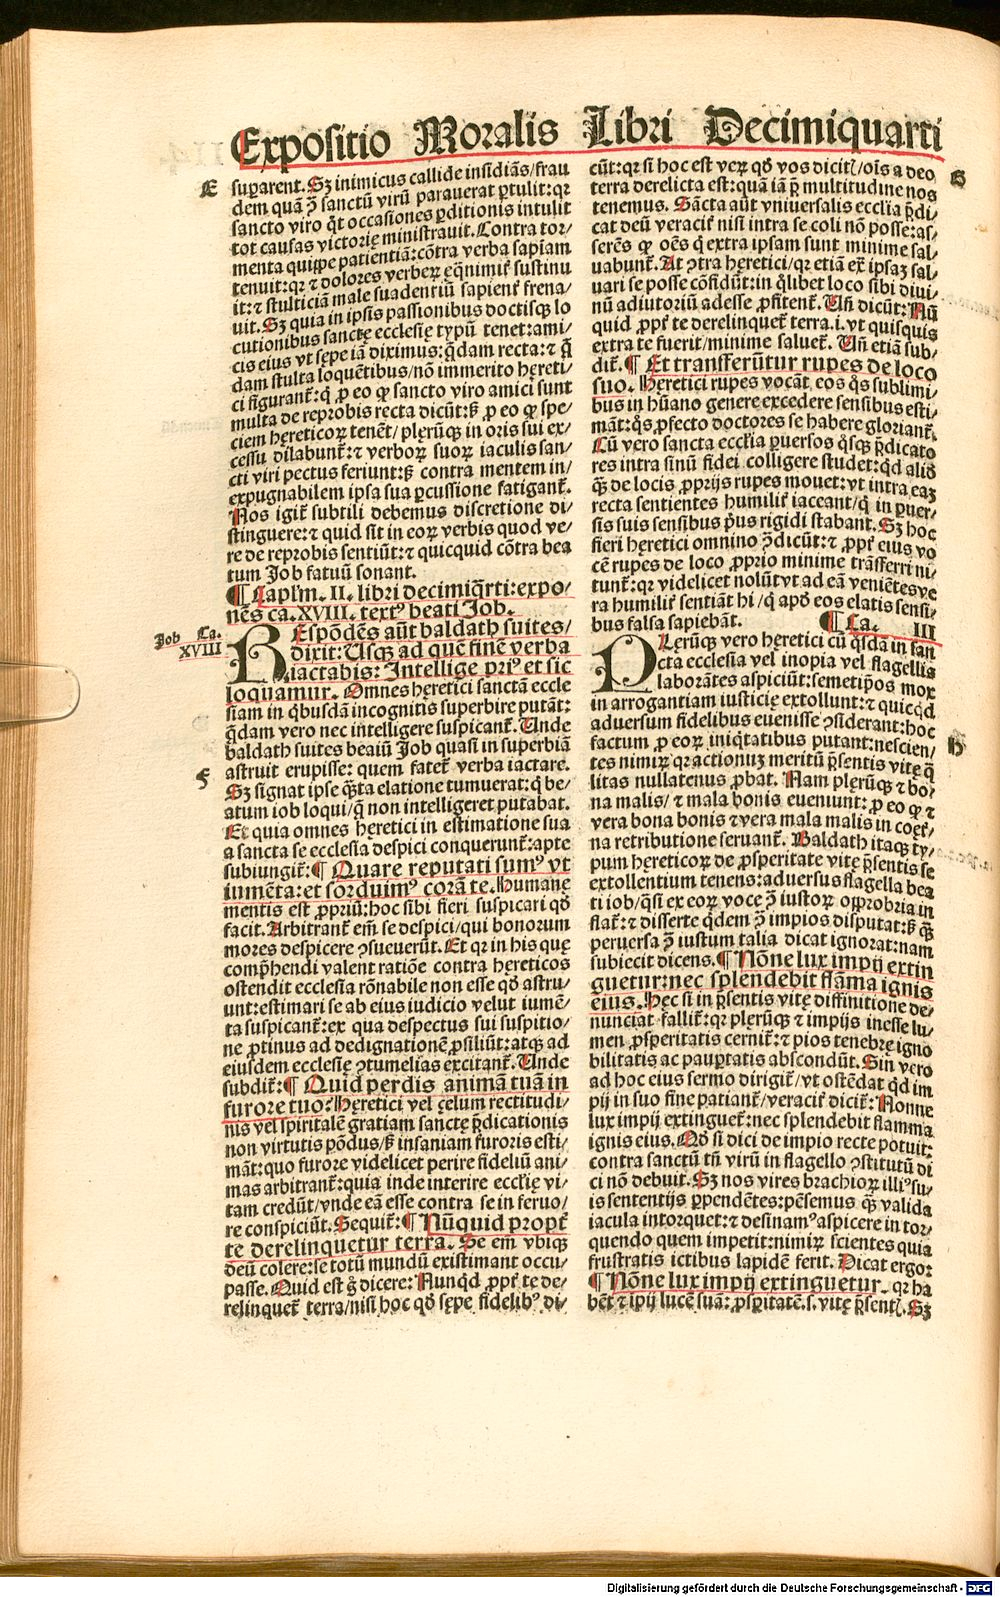 Expositio Moralis Libri Decimiquarti
E
suꝑarent. Sꝫ inimicus callide insidiās/frau
dem quā ꝯ̄ sanctū virū parauerat ꝑtulit: qꝛ
sancto viro q̄t occasiones ꝑditionis intulit
tot causas victorię ministrauit. Contra tor/
menta quippe patientiā: cōtra verba sapiam
tenuit: qꝛ ⁊ dolores verberꝝ eq̄nimiť sustinu
it: ⁊ stulticiā male suadentiū sapienť frena/
uit. Sꝫ quia in ipsis passionibus doctisqꝫ lo
cutionibus sanctę ecclesię typū tenet: ami/
cis eius vt sępe iā diximus: q̄dam recta: ⁊ q̄
dam stulta loquētibus/nō immerito hęreti/
ci figuranť: q̇ ꝓ eo ꝙ sancto viro amici sunt
multa de reprobis recta dicūt: ꝗ̄ ꝓ eo ꝙ spe/
ciem hęreticoꝝ tenēt/plerūqꝫ in oris sui ex/
cessu dilabunť: ⁊ verboꝝ suoꝝ iaculis san/
cti viri pectus feriunt: ꝗ̄ contra mentem in/
expugnabilem ipsa sua ꝑcussione fatiganť.
Nos igiť subtili debemus discretione di/
stinguere: ⁊ quid sit in eoꝝ verbis quod ve/
re de reprobis sentiūt: ⁊ quicquid cōtra bea
tum Job fatuū sonant.
¶ Caplm. II. libri decimiq̄rti: expo/
nēs ca. XVIII. textꝰ beati Job.
Job Ca.
XVIII
REspōdēs aūt baldath suites/
dixit: Usqꝫ ad quē finē verba
iactabis: Intellige priꝰ et sic
loquamur. Omnes heretici sanctā eccle
siam in q̇busdā incognitis superbire putāt:
q̄dam vero nec intelligere suspicanť. Unde
baldath suites beatū Job quasi in superbiā
F
astruit erupisse: quem fateť verba iactare.
Sꝫ signat ipse q̄ta elatione tumuerat: q̇ be/
atum iob loqui/q̄ non intelligeret putabat.
Et quia omnes heretici in estimatione sua
a sancta se ecclesia despici conquerunť: apte
subiungiť: ¶ Quare reputati sumꝰ vt
iumēta: et sorduimꝰ corā te. Humanę
mentis est ꝓpriū: hoc sibi fieri suspicari qď
facit. Arbitranť em̄ se despici/qui bonorum
mores despicere ꝯsueuerūt. Et qꝛ in his quę
cōp̄hendi valent ratiōe contra hęreticos
ostendit ecclesia rōnabile non esse qď astru/
unt: estimari se ab eius iudicio velut iumē/
ta suspicanť: ex qua despectus sui suspitio/
ne ꝓtinus ad dedignationē ꝓsiliūt: atqꝫ ad
eiusdem ecclesię ꝯtumelias excitanť. Unde
subdiť: ¶ Quid perdis animā tuā in
furore tuo: Hęretici vel çelum rectitudi/
nis vel spiritalē gratiam sanctę p̄dicationis
non virtutis pōdus/ꝗ̄ insaniam furoris esti/
māt: quo furore videlicet perire fideliū ani/
mas arbitranť: quia inde interire ecclię vi/
tam credūt/vnde eā esse contra se in feruo/
re conspiciūt. Sequiť: ¶ Nūquid propť
te derelinquetur terra. Se em̄ vbiqꝫ
deū colere: se totū mundū existimant occu/
passe. Quid est g̊ dicere: Nunqd ꝓpť te de/
relinqueť terra/nisi hoc qď sępe fidelibꝰ di/
cūt: qꝛ si hoc est veꝝ qď vos diciť/ois a deo
G
terra derelicta est: quā iā p̄ multitudine nos
tenemus. Sācta aūt vniuersalis ecclia p̄di/
cat deū veraciť nisi intra se coli nō posse: as/
serēs ꝙ oēs q̇ extra ipsam sunt minime sal/
uabunť. At ꝯtra hęretici/qꝛ etiā ex̄ ipsaꝫ sal/
uari se posse cōfidūt: in q̇libet loco sibi diui/
nū adiutoriū adesse ꝓfitenť. Uñ dicūt: Nū
quid ꝓpť te derelinqueť terra. i. vt quisquis
extra te fuerit/minime salueť. Uñ etiā sub/
diť. ¶ Et transferūtur rupes de loco
suo. Hęretici rupes vocāt eos q̊s sublimi/
bus in hūano genere excedere sensibus esti/
māt: q̊s ꝓfecto doctores se habere glorianť.
Cū vero sancta ecclia ꝑuersos q̊sqꝫ p̄dicato
res intra sinū fidei colligere studet: qd aliď
q̄ꝫ de locis ꝓprijs rupes mouet: vt intra eaꝫ
recta sentientes humiliť iaceant/q̇ in ꝑuer/
sis suis sensibus p̄us rigidi stabant. Sꝫ hoc
fieri hęretici omnino ꝯ̄dicūt: ⁊ ꝓpť eius vo
cē rupes de loco ꝓprio minime trāsferri ni/
tunť: qꝛ videlicet nolūt vt ad eā veniētes ve
ra humiliť sentiāt hi/q̇ apď eos elatis sensi/
bus falsa sapiebāt. ¶ Ca. III
PLerūqꝫ vero hęretici cū q̊sdā in san
cta ecclesia vel inopia vel flagellis
laborātes aspiciūt: semetip̄os mox
in arrogantiam iusticię extollunt: ⁊ quicqd
aduersum fidelibus euenisse ꝯsiderant: hoc
H
factum ꝓ eoꝝ iniq̇tatibus putant: nescien/
tes nimiꝝ qꝛ actionuꝫ meritū p̄sentis vitę q̄
litas nullatenus ꝓbat. Nam plęrūqꝫ ⁊ bo/
na malis/ ⁊ mala bonis eueniunt: ꝓ eo ꝙ ⁊
vera bona bonis ⁊ vera mala malis in coęť/
na retributione seruanť. Baldath itaqꝫ ty/
pum hęreticoꝝ de ꝓsperitate vitę p̄sentis se
extollentium tenens: aduersus flagella bea
ti iob/q̄si ex eoꝝ voce ꝯ̄ iustoꝝ opprobria in
flať: ⁊ disserte q̇dem ꝯ̄ impios disputat: ꝗ̄ q̄ꝫ
peruersa ꝯ̄ iustum talia dicat ignorat: nam
subiecit dicens. ¶ Nōne lux impij extin
guetur: nec splendebit flāma ignis
eius. Hęc si in p̄sentis vitę diffinitione de/
nunciat falliť: qꝛ plęrūqꝫ ⁊ impijs inesse lu/
men ꝓsperitatis cerniť: ⁊ pios tenebrę igno
bilitatis ac pauꝑtatis abscondūt. Sin vero
ad hoc eius sermo dirigiť/vt ostēdat qd im
pij in suo fine patianť/veraciť diciť: Nonne
lux impij extingueť: nec splendebit flamma
ignis eius. Qď si dici de impio recte potuit:
contra sanctū tn̄ virū in flagello ꝯstitutū di
ci nō debuit. Sꝫ nos vires brachioꝝ illiꝰ su/
is sententijs ꝑpendētes: pēsemus q̄ꝫ valida
iacula intorquet: ⁊ desinamꝰ aspicere in tor/
quendo quem impetit: nimiꝝ scientes quia
frustratis ictibus lapidē ferit. Dicat ergo:
¶ Nōne lux impij extinguetur. qꝛ ha
bēt ⁊ ipij lucē suā: ꝓsꝑitatē. s. vitę p̄senť. Sꝫ
Digitalisierung gefördert durch die Deutsche Forschungsgemeinschaft - DFG